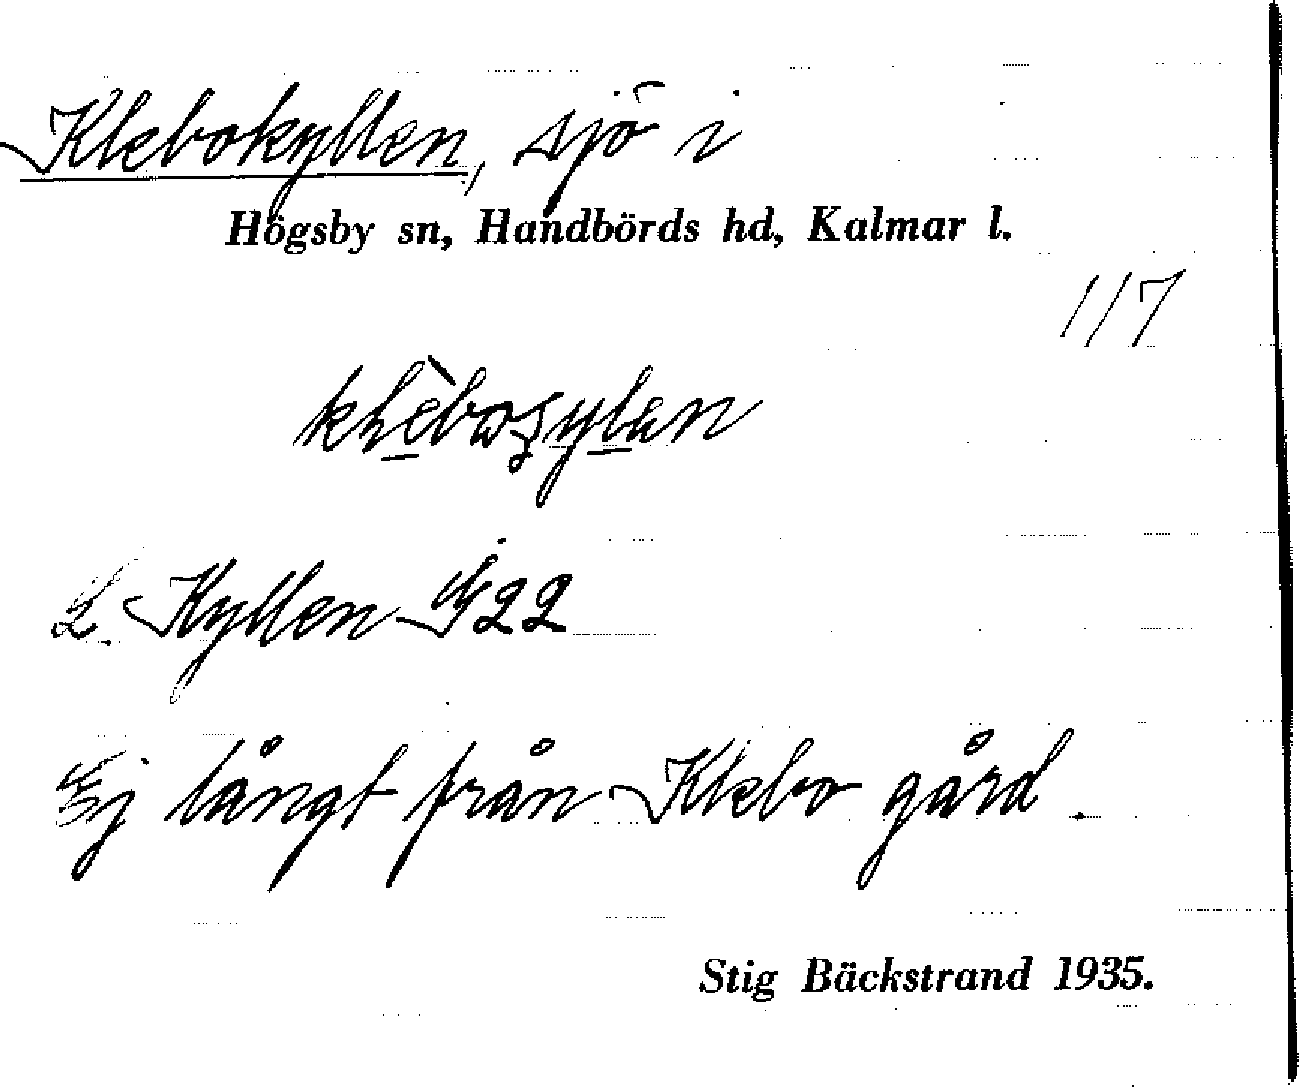 Klebokyllen, sjö i
Högsby sn, Handbörds hd, Kalmar l.
117
L. Kyllen G22
Ej långt från Klebo gård.
Stig Bäckstrand 1935.